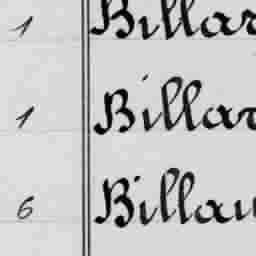 1 Billar
1 Billar
6 Billau